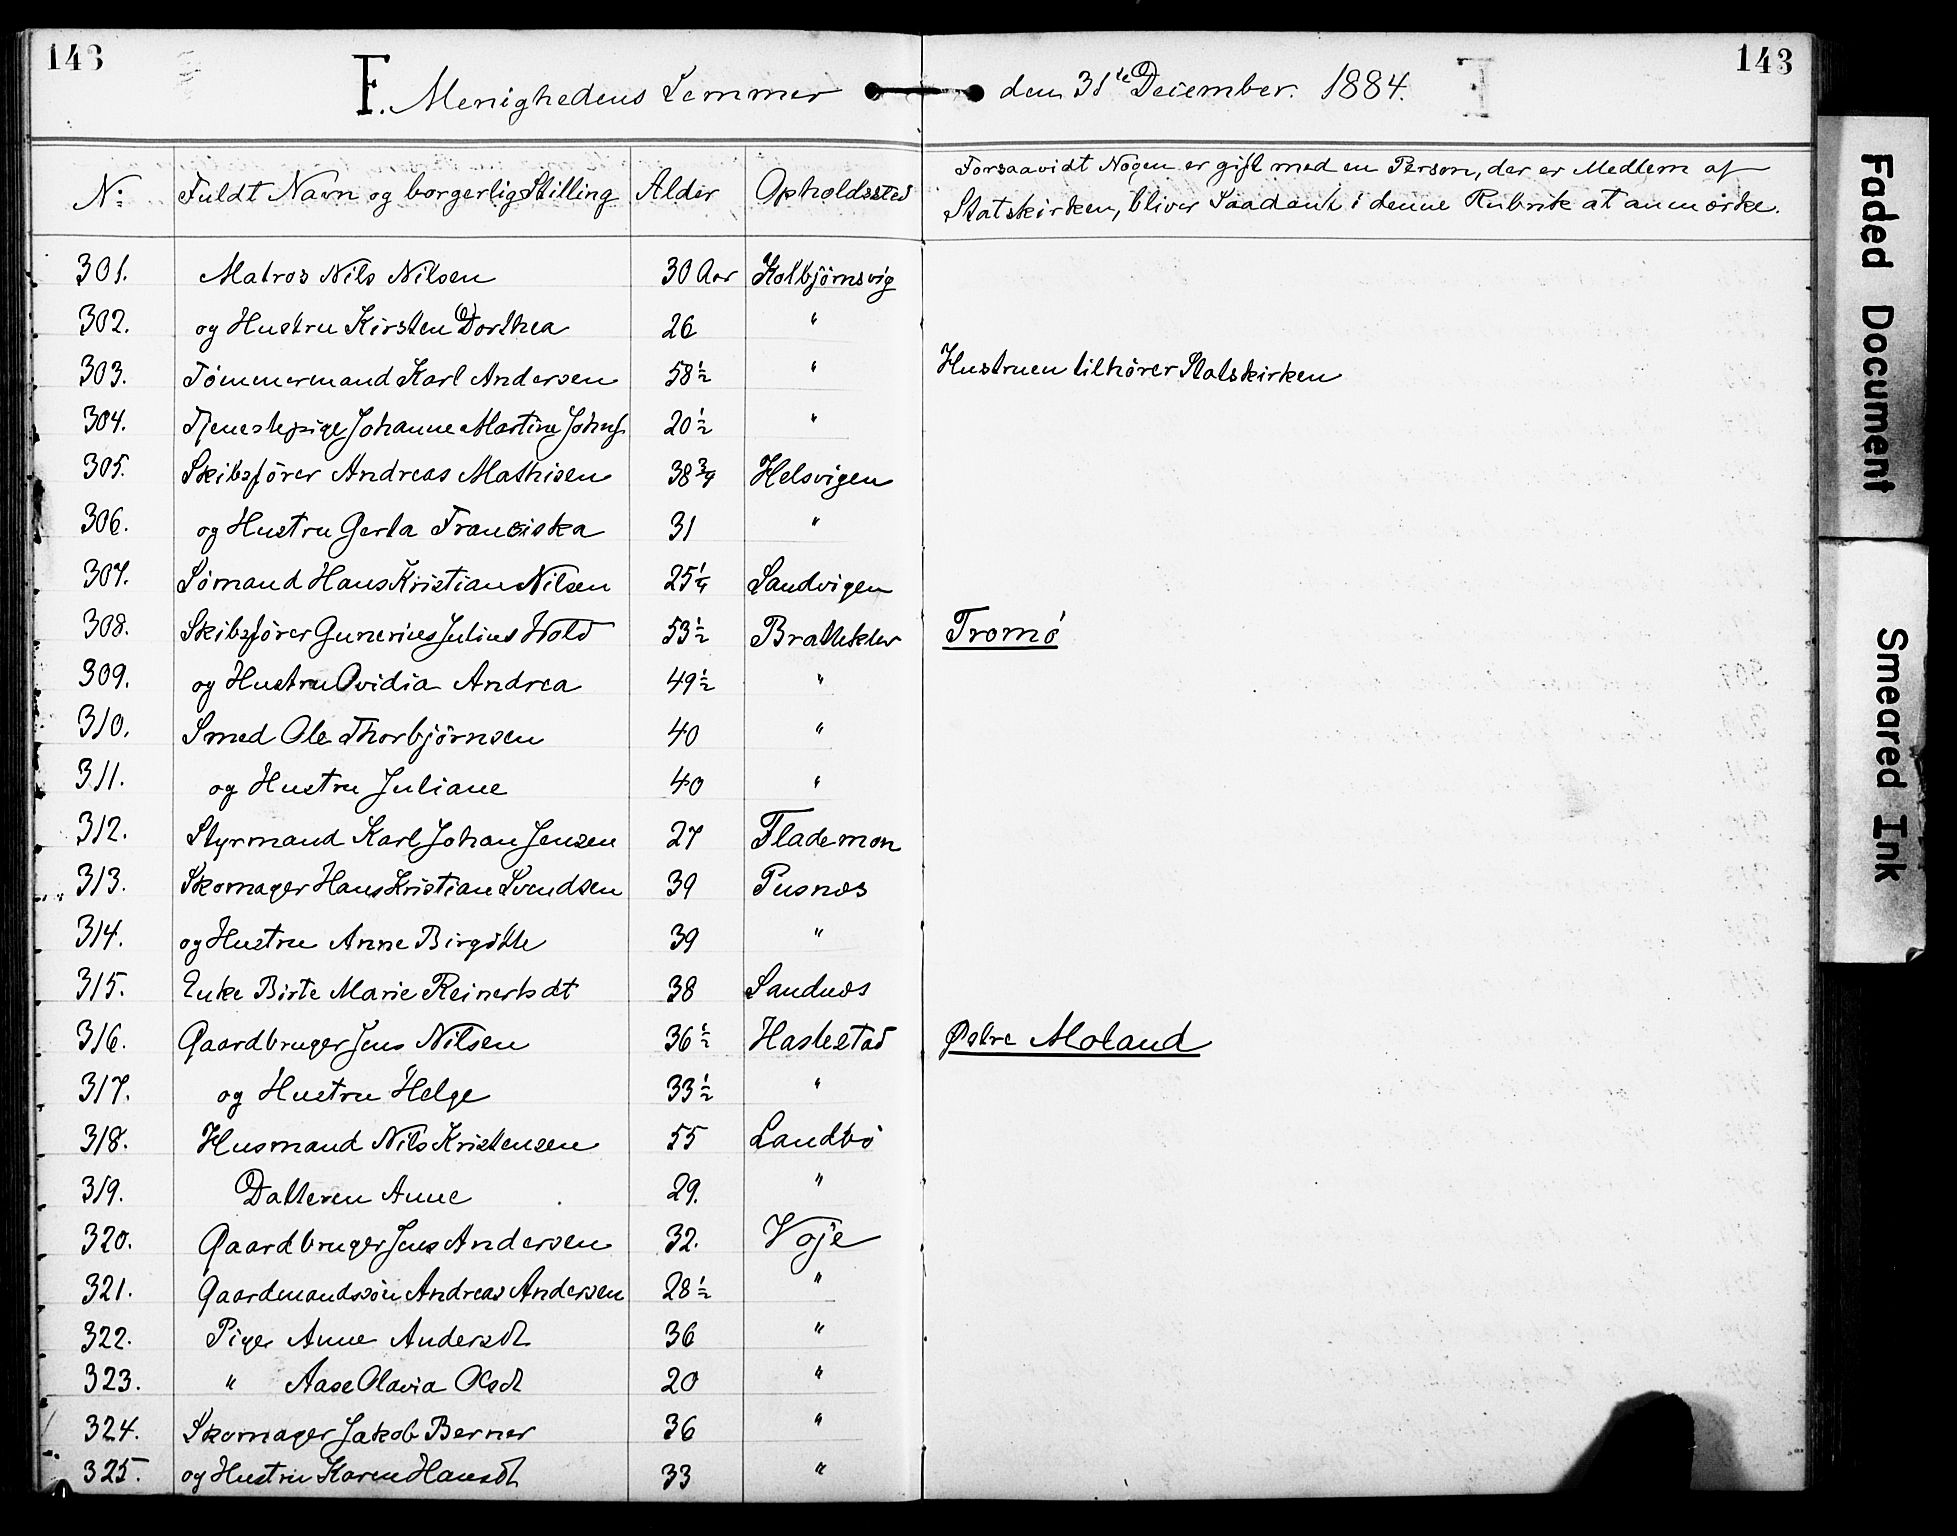 143 143
F. Menighedens Lemmer den 31te December. 1884. F
No: Fuldt Navn og borgerlig Stilling Alder Opholdssted Forsaavidt Nogen er gift med en Person, der er Medlem af
Statskirken, bliver Saadant i denne Rubrik at anmærke.
301. Matros Nils Nilsen 30 Aar Kolbjørnsvig
302. og Hustru Kirsten Dorthea 26 "
303. Tömmermand Karl Andersen 58 1/2 " Hustruen tilhører Statskirken
304. Tjenestepige Johanne Martine Johns 20 1/2 "
305. Skibsfører Andreas Mathisen 38 3/4 Helsvigen
306. og Hustru Gerta Franciska 31 "
307. Sömand Hans Kristian Nilsen 25 1/4 Sandvigen
308. Skibsfører Gunerius Julius Wold 53 1/2 Bratteklev Tromö
309. og Hustru Ovidia Andrea 49 1/2 "
310. Smed Ole Thorbjörnsen 40 "
311. og Hustru Juliane 40 "
312. Styrmand Karl Johan Jensen 27 Flademoen
313. Skomager Hans Kristian Svendsen 39 Pusnæs
314. og Hustru Anne Birgitte 39 "
315. Enke Birte Marie Reinertsdt 38 Sandnæs
316. Gaardbruger Jens Nilsen 36 1/2 Haslestad Østre Moland
317. og Hustru Helge 33 1/2 "
318. Husmand Nils Kristensen 55 Landbö
319. Datteren Anne 29. "
320. Gaardbruger Jens Andersen 32. Voje
321. Gaardmandssön Andreas Andersen 28 1/2 "
322. Pige Anne Andersdt 36 "
323. " Aase Olavia Olsdt 20 "
324. Skomager Jakob Berner 36 "
325. og Hustru Karen Hansdt 33 "
Faded Document
Smeared Ink